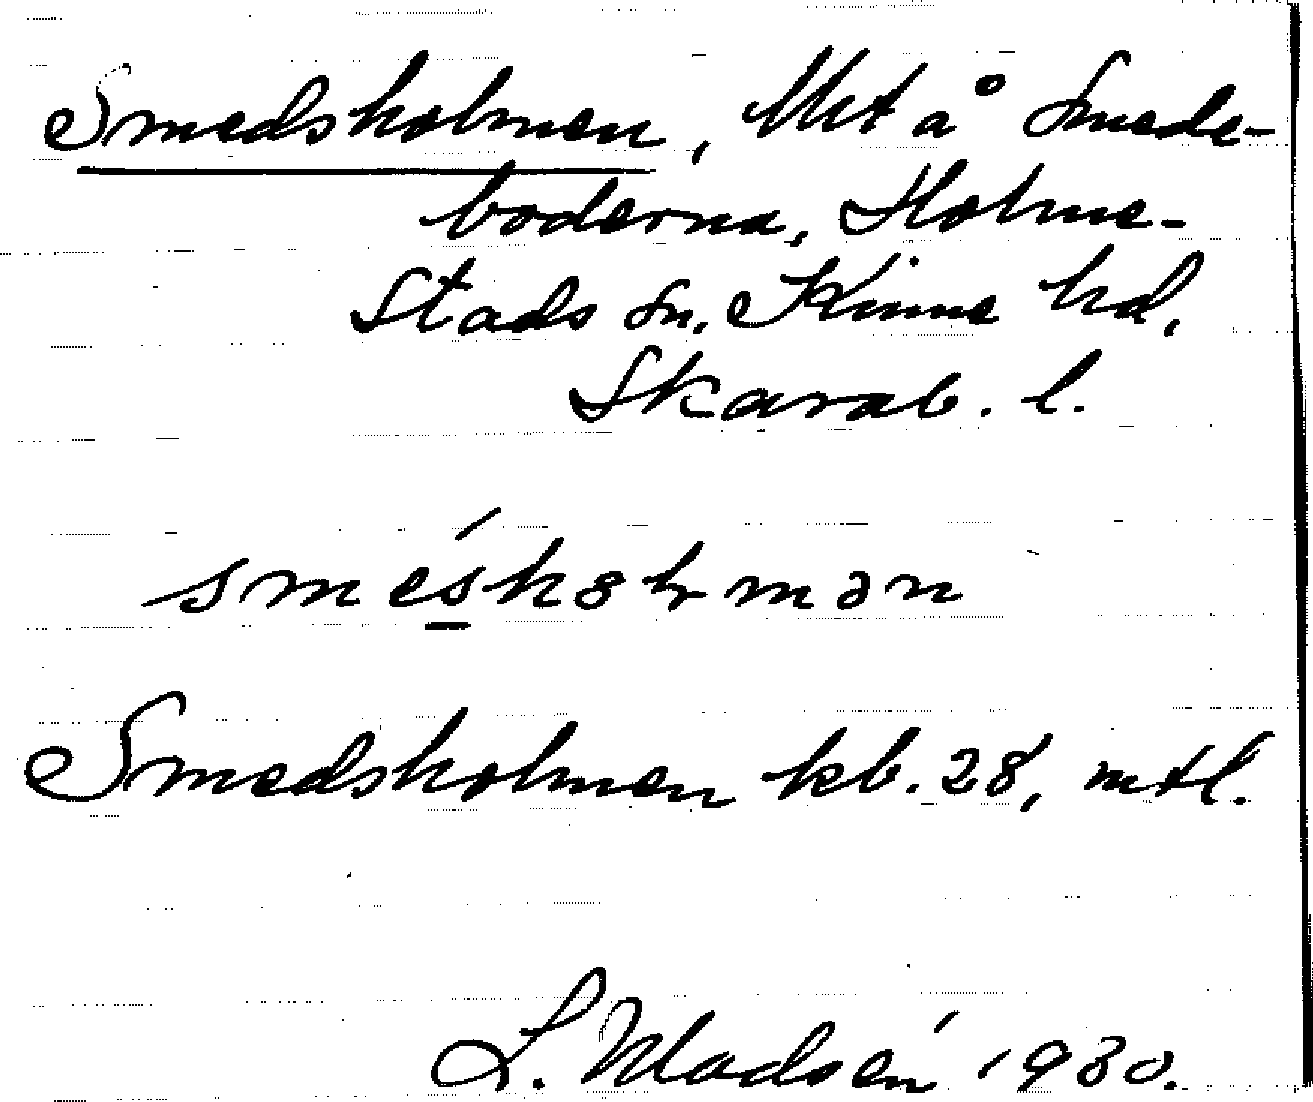 Smedsholmen, Uht å Smede-
boderna, Holme-
stads sn, Kinne hd,
Skarab. l.
smés̱kȣłmən
Smedsholmen kb. 28, mtl.
L. Modsén 1930.